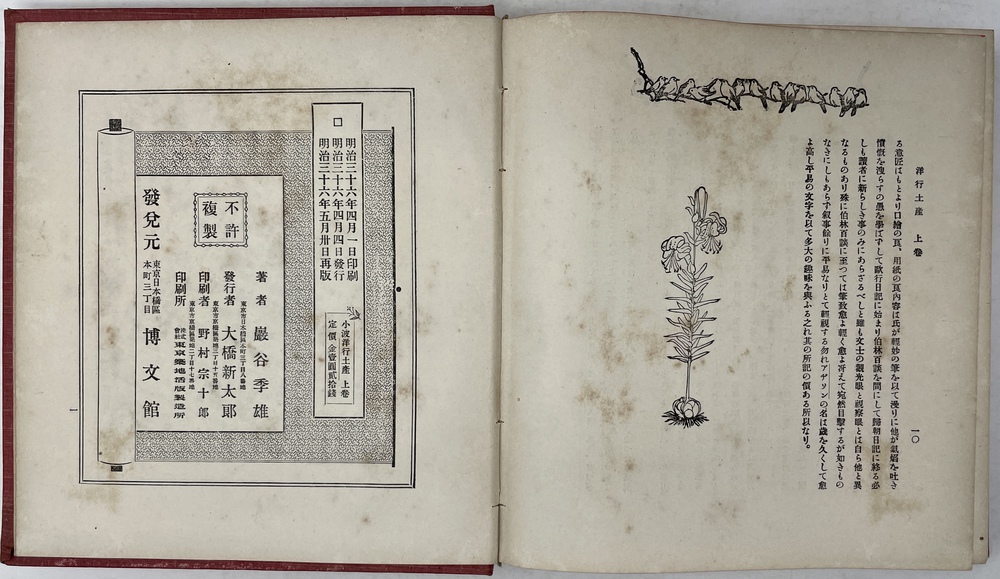 洋行土産　上卷
一〇
る意匠はもとより口繪の頁、用紙の頁内容は氏が輕妙の筆を以て漫りに他が氣焔を吐き
憤慨を洩らすの愚を學ばずして歐行日記に始まり伯林百談を間にして歸朝日記に終る必
しも讀者に新らしき事のみにあらざるべしと雖も文士の觀光眼と視察眼とは自ら他と異
なるものあり殊に伯林百談に至つては筆致愈よ輕く愈よ冴えて宛然目擊するが如きもの
なきにしもあらず叙事餘りに平易なりとて輕視する勿れアザリンの名は歲を久くして愈
よ高し平易の文字を以て多大の趣味を與ふる之れ其の所記の價ある所以なり。
明治三十六年四月一日印刷
明治三十六年四月四日發行
明治三十六年五月卅日再版
小波洋行土產　上卷
定價金壹圓貳拾錢
不許
複製
著者　巖谷季雄
東京市日本橋區本町三丁目八番地
發行者　大橋新太郎
東京市京橋區築地三丁目十五番地
印刷者　野村宗十郎
東京市京橋區築地二丁目十七番地
印刷所　株式會社東京築地活版製造所
發兌元　東京日本橋區本町三丁目　博文館